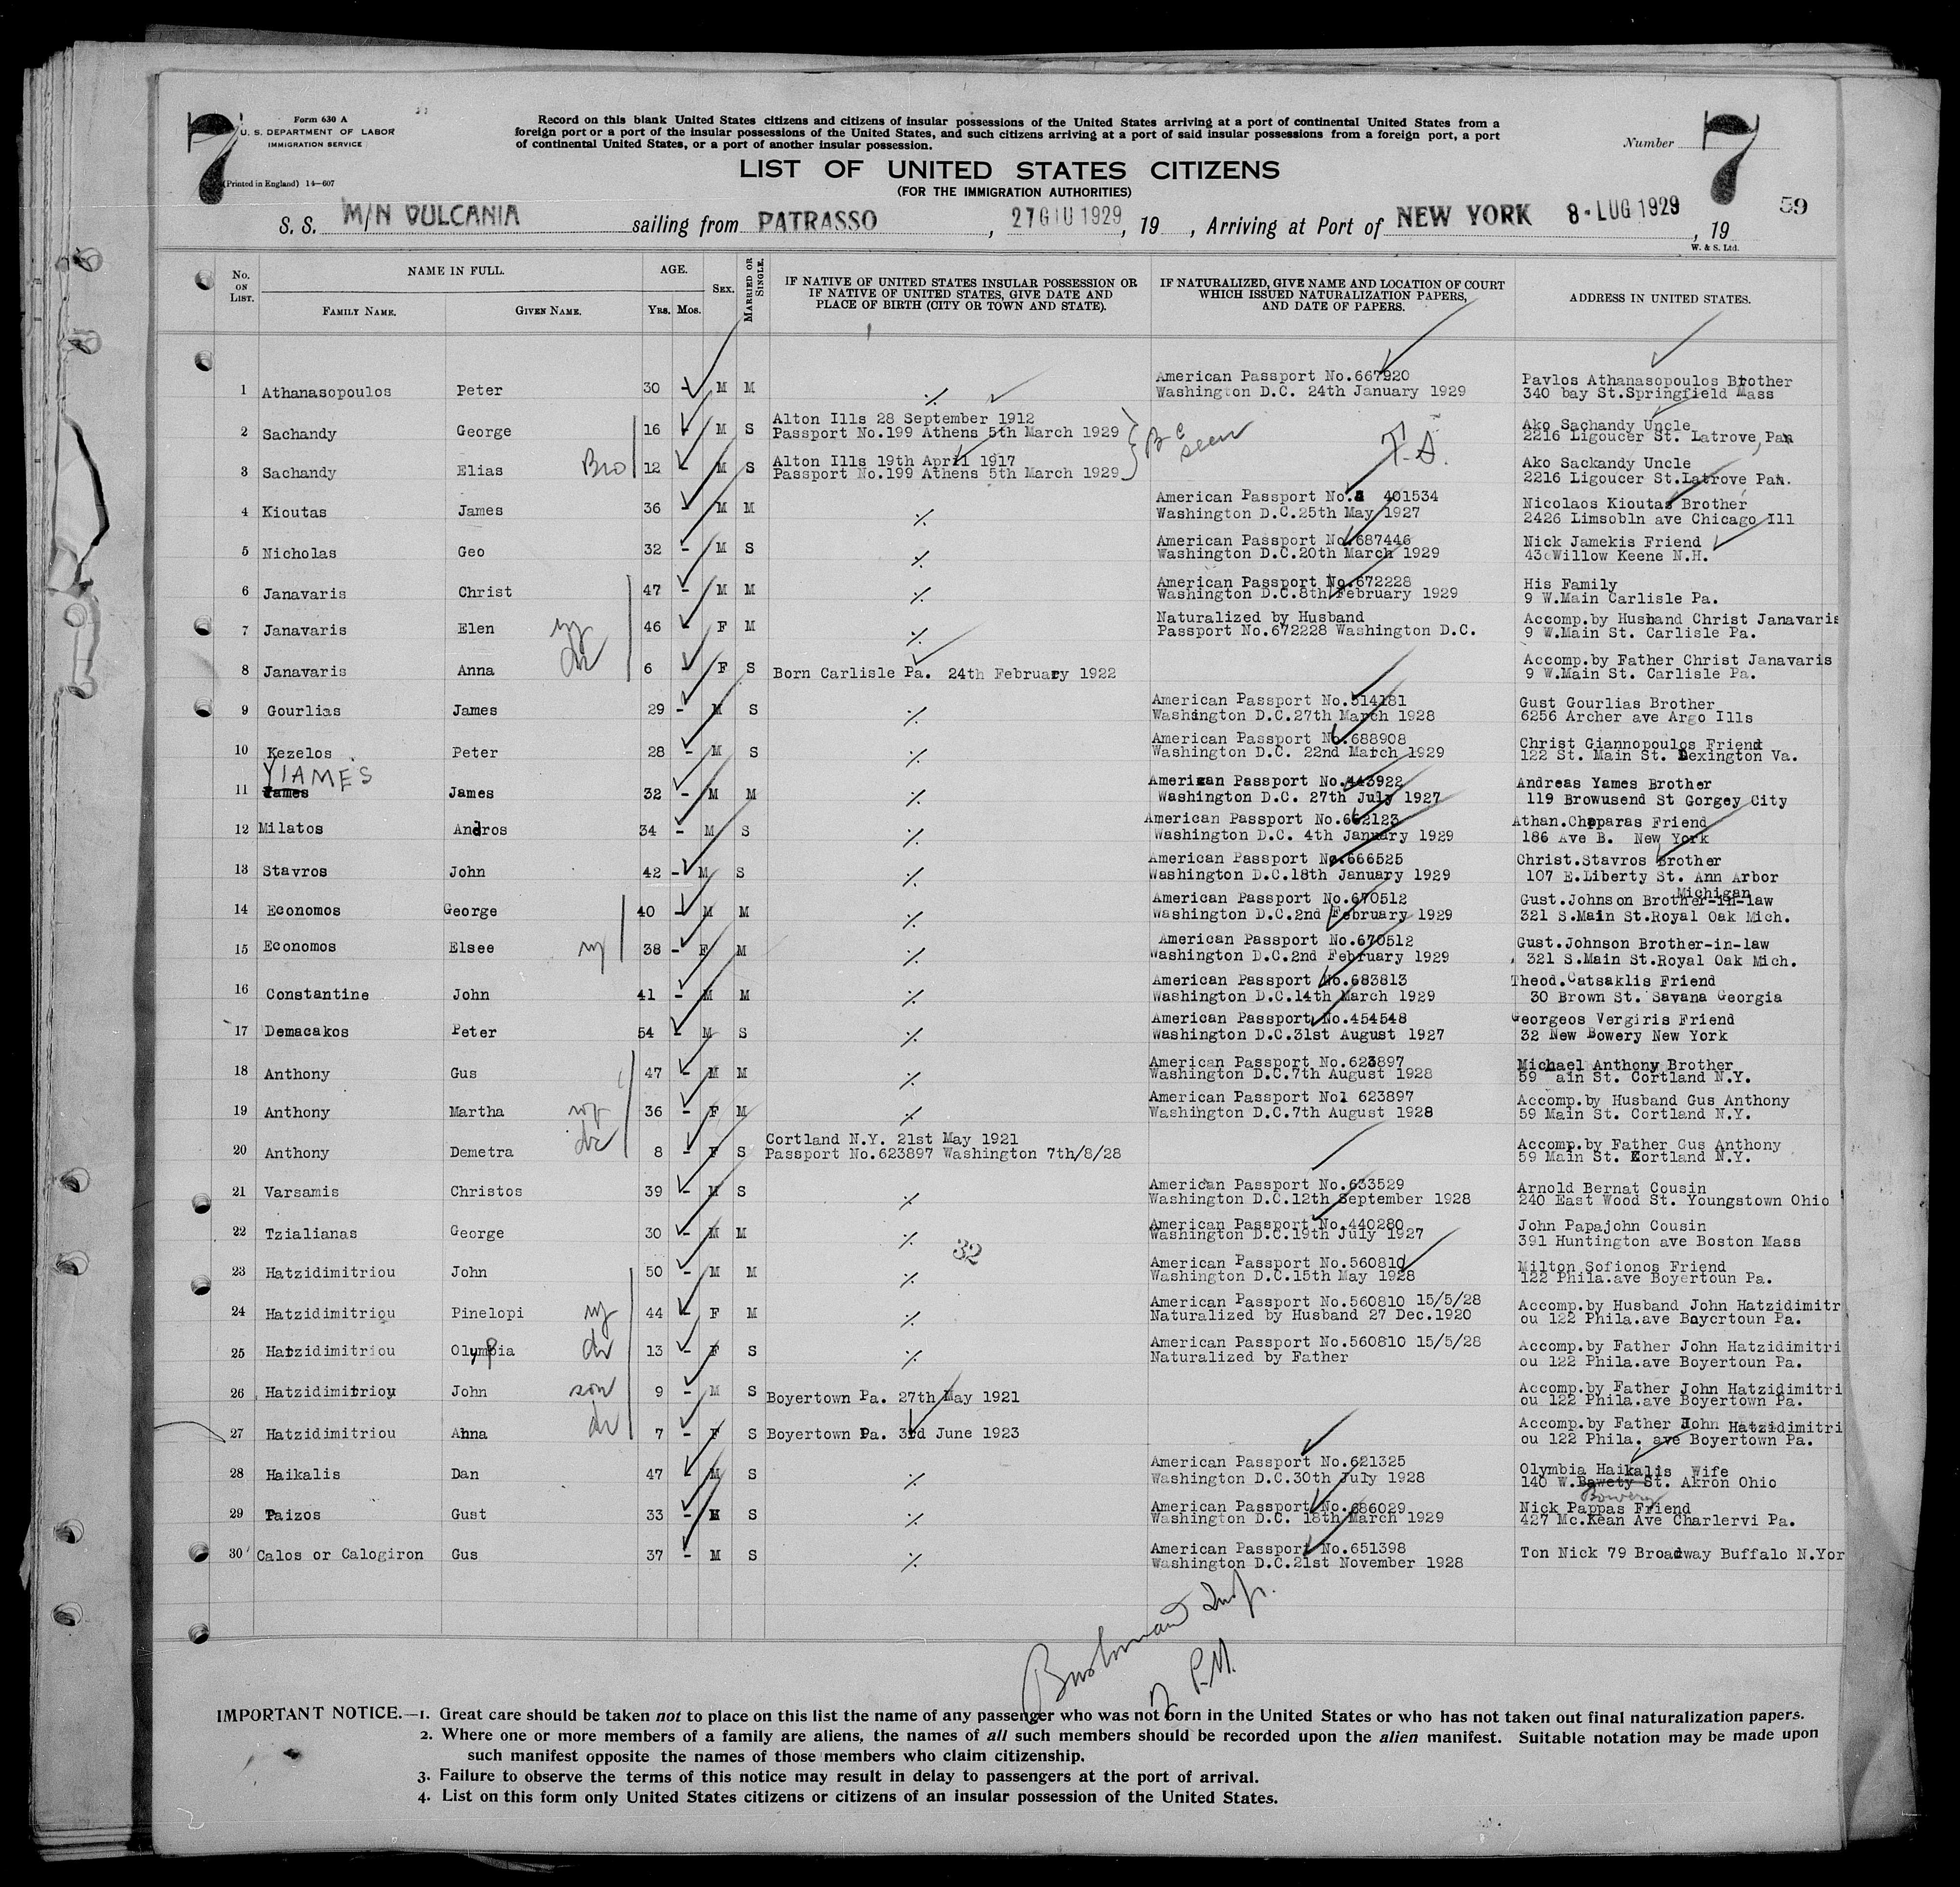 7
Form 630 A
U. S. DEPARTMENT OF LABOR
IMMIGRATION SERVICE
(Printed in England) 14—607
Record on this blank United States citizens and citizens of insular possessions of the United States arriving at a port of continental United States from a
foreign port or a port of the insular possessions of the United States, and such citizens arriving at a port of said insular possessions from a foreign port, a port
of continental United States, or a port of another insular possession.
Number 7
LIST OF UNITED STATES CITIZENS
(FOR THE IMMIGRATION AUTHORITIES)
59
S. S. M/N VULCANIA sailing from PATRASSO, 27 GIU 1929, 19 , Arriving at Port of NEW YORK 8 - LUG 1929, 19
W. & S. Ltd.
No. ON LIST.
NAME IN FULL.
FAMILY NAME. GIVEN NAME.
AGE.
YRS. MOS.
SEX.
MARRIED OR SINGLE.
IF NATIVE OF UNITED STATES INSULAR POSSESSION OR
IF NATIVE OF UNITED STATES, GIVE DATE AND
PLACE OF BIRTH (CITY OR TOWN AND STATE).
IF NATURALIZED, GIVE NAME AND LOCATION OF COURT
WHICH ISSUED NATURALIZATION PAPERS,
AND DATE OF PAPERS.
ADDRESS IN UNITED STATES.
1 Athanasopoulos Peter 30 - M M ⁒ American Passport No.667920 Pavlos Athanasopoulos Brother
Washington D.C. 24th January 1929 340 bay St.Springfield Mass
2 Sachandy George 16 - M S Alton Ills 28 September 1912 Ako Sachandy Uncle
Passport No.199 Athens 5th March 1929 2216 Ligoucer St. Latrove, Pan
B C seen
T.S.
3 Sachandy Elias Bro 12 - M S Alton Ills 19th April 1917 Ako Sackandy Uncle
Passport No.199 Athens 5th March 1929 2216 Ligoucer St.Latrove Pan.
4 Kioutas James 36 - M M ⁒ American Passport No. 401534 Nicolaos Kioutas Brother
Washington D.C.25th May 1927 2426 Limsobln ave Chicago Ill
5 Nicholas Geo 32 - M S ⁒ American Passport No.687446 Nick Jamekis Friend
Washington D.C.20th March 1929 43cWillow Keene N.H.
6 Janavaris Christ 47 - M M ⁒ American Passport No.672228 His Family
Washington D.C.8th February 1929 9 W.Main Carlisle Pa.
7 Janavaris Elen 46 - F M ⁒ Naturalized by Husband Accomp.by Husband Christ Janavaris
Passport No.672228 Washington D.C. 9 W.Main St. Carlisle Pa.
8 Janavaris Anna 6 - F S Born Carlisle Pa. 24th February 1922 Accomp.by Father Christ Janavaris
9 W.Main St. Carlisle Pa.
9 Gourlias James 29 - M S ⁒ American Passport No.514181 Gust Gourlias Brother
Washington D.C.27th March 1928 6256 Archer ave Argo Ills
10 Kezelos Peter 28 - M S ⁒ American Passport No.688908 Christ Giannopoulos Friend
Washington D.C. 22nd March 1929 122 St. Main St. Lexington Va.
YIAMES
11 Yames James 32 - M M ⁒ American Passport No.443922 Andreas Yames Brother
Washington D.C. 27th July 1927 119 Browusend St Gorgey City
12 Milatos Andros 34 - M S ⁒ American Passport No.662123 Athan.Chaparas Friend
Washington D.C. 4th January 1929 186 Ave B. New York
13 Stavros John 42 - M S ⁒ American Passport No.666525 Christ.Stavros Brother
Washington D.C.18th January 1929 107 E.Liberty St. Ann Arbor
Michigan
14 Economos George 40 - M M ⁒ American Passport No.670512 Gust.Johnson Brother-in-law
Washington D.C.2nd February 1929 321 S.Main St.Royal Oak Mich.
15 Economos Elsee 38 - F M ⁒ American Passport No.670512 Gust.Johnson Brother-in-law
Washington D.C.2nd February 1929 321 S.Main St.Royal Oak Mich.
16 Constantine John 41 - M M ⁒ American Passport No.683813 Theod.Catsaklis Friend
Washington D.C.14th March 1929 30 Brown St. Savana Georgia
17 Demacakos Peter 54 - M S ⁒ American Passport No.454548 Georgeos Vergiris Friend
Washington D.C.31st August 1927 32 New Bowery New York
18 Anthony Gus 47 - M M ⁒ American Passport No.623897 Michael Anthony Brother
Washington D.C.7th August 1928 59 ain St. Cortland N.Y.
19 Anthony Martha 36 - F M ⁒ American Passport No1 623897 Accomp.by Husband Gus Anthony
Washington D.C.7th August 1928 59 Main St. Cortland N.Y.
20 Anthony Demetra 8 - F S Cortland N.Y. 21st May 1921 Accomp.by Father Gus Anthony
Passport No.623897 Washington 7th/8/28 59 Main St. Cortland N.Y.
21 Varsamis Christos 39 - M S ⁒ American Passport No.633529 Arnold Bernat Cousin
Washington D.C.12th September 1928 240 East Wood St. Youngstown Ohio
22 Tzialianas George 30 - M M ⁒ American Passport No.440280 John Papajohn Cousin
Washington D.C.19th July 1927 391 Huntington ave Boston Mass
32
23 Hatzidimitriou John 50 - M M ⁒ American Passport No.560810 Milton Sofionos Friend
Washington D.C.15th May 1928 122 Phila.ave Boyertoun Pa.
24 Hatzidimitriou Pinelopi 44 - F M ⁒ American Passport No.560810 15/5/28 Accomp.by Husband John Hatzidimitr
Naturalized by Husband 27 Dec.1920 ou 122 Phila.ave Boycrtoun Pa.
25 Hatzidimitriou Olympia 13 - F S ⁒ American Passport No.560810 15/5/28 Accomp.by Father John Hatzidimitri
Naturalized by Father ou 122 Phila.ave Boyertoun Pa.
26 Hatzidimitriou John son 9 - M S Boyertown Pa. 27th May 1921 Accomp.by Father John Hatzidimitri
ou 122 Phila.ave Boyertown Pa.
27 Hatzidimitriou Anna 7 - F S Boyertown Pa. 3rd June 1923 Accomp.by Father John Hatzidimitri
ou 122 Phila. ave Boyertown Pa.
28 Haikalis Dan 47 - M S ⁒ American Passport No.621325 Olymbia Haikalis Wife
Washington D.C.30th July 1928 140 W.Bowety St. Akron Ohio
Bowery
29 Paizos Gust 33 - M S ⁒ American Passport No.686029 Nick Pappas Friend
Washington D.C. 18th March 1929 427 Mc.Kean Ave Charlervi Pa.
30 Calos or Calogiron Gus 37 - M S ⁒ American Passport No.651398 Ton Nick 79 Broadway Buffalo N.Yor
Washington D.C.21st November 1928
IMPORTANT NOTICE.—1. Great care should be taken not to place on this list the name of any passenger who was not born in the United States or who has not taken out final naturalization papers.
2. Where one or more members of a family are aliens, the names of all such members should be recorded upon the alien manifest. Suitable notation may be made upon
such manifest opposite the names of those members who claim citizenship.
3. Failure to observe the terms of this notice may result in delay to passengers at the port of arrival.
4. List on this form only United States citizens or citizens of an insular possession of the United States.